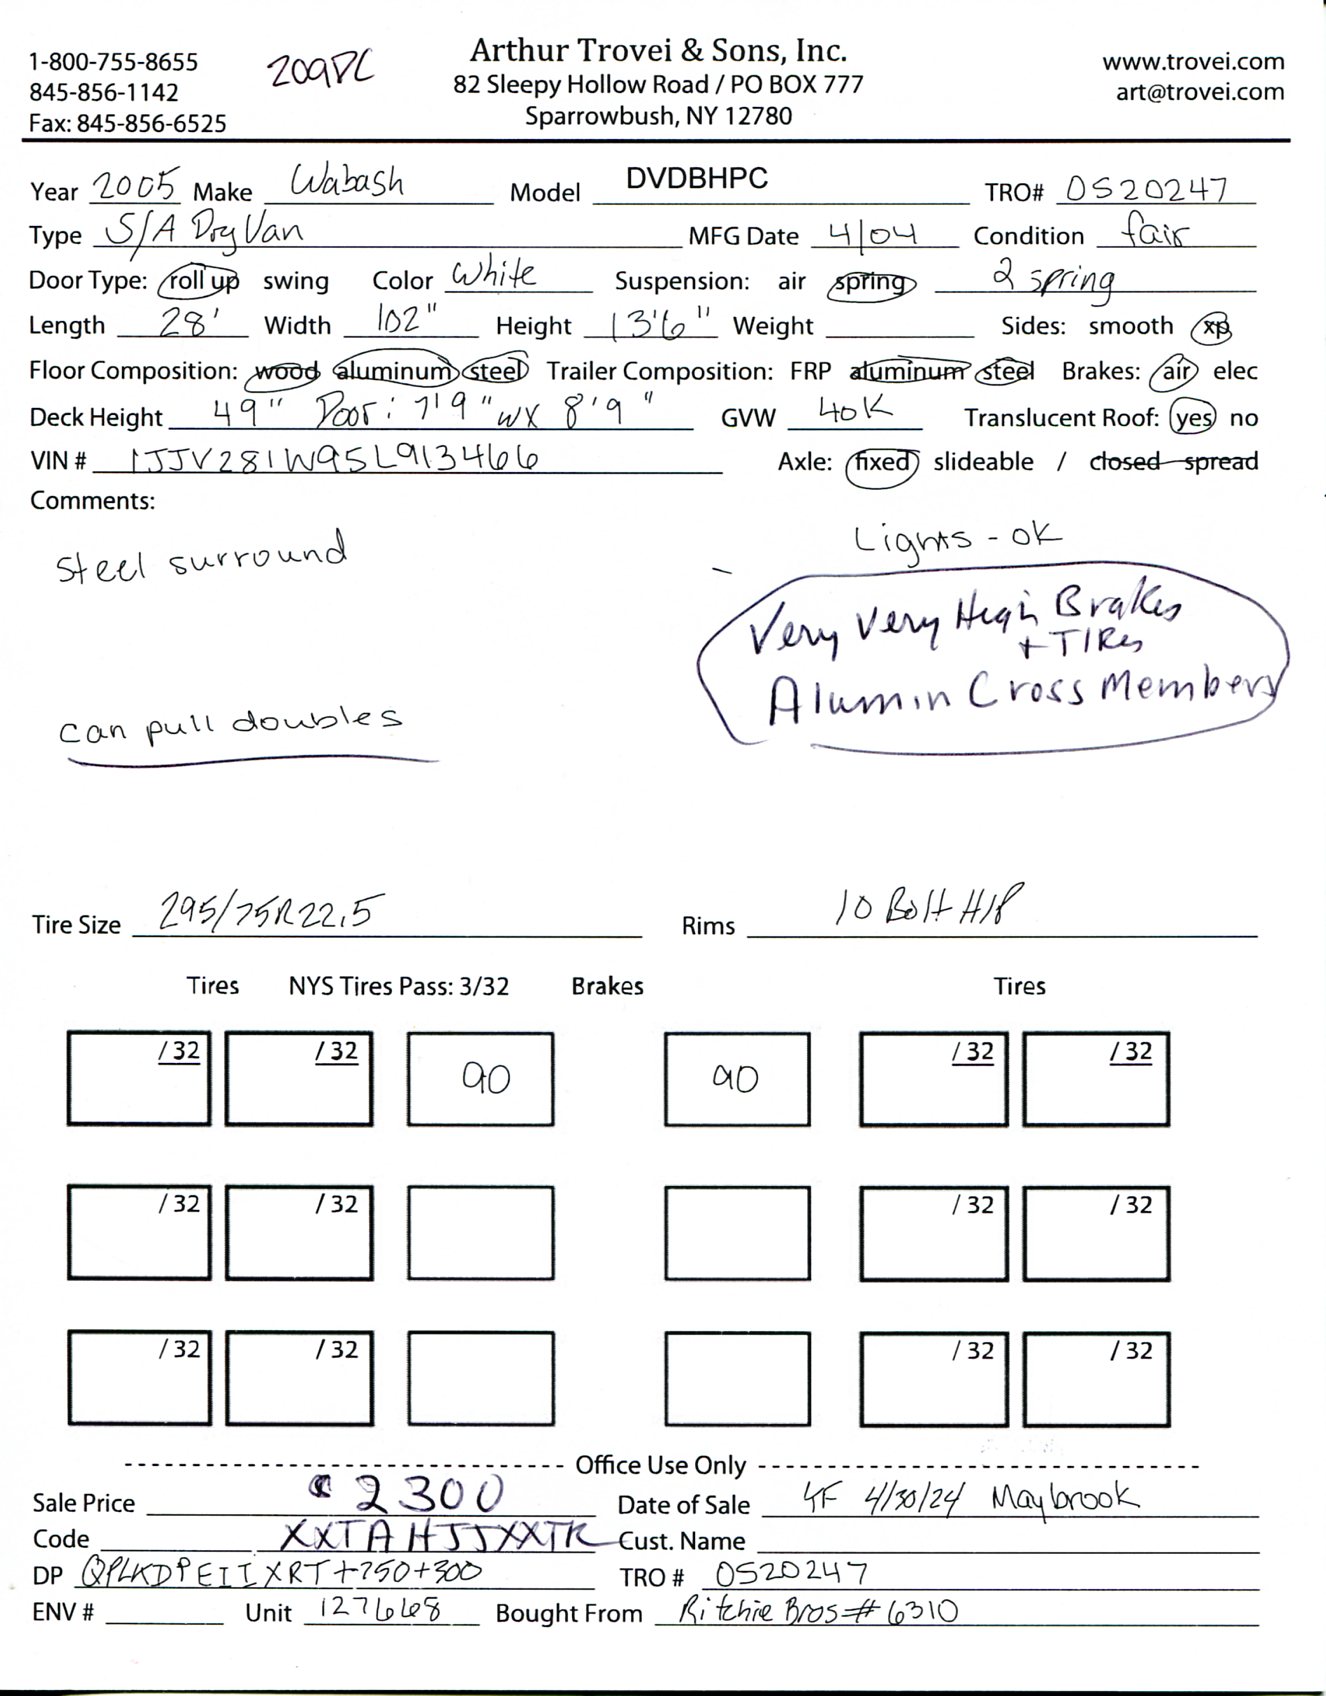 1-800-755-8655
845-856-1142
Fax: 845-856-6525
209DC
Arthur Trovei & Sons, Inc.
82 Sleepy Hollow Road / PO BOX 777
Sparrowbush, NY 12780
www.trovei.com
art@trovei.com
Year 2005 Make Wabash Model DVDBHPC TRO# OS20247
Type S/A Dry Van MFG Date 4/04 Condition fair
Door Type: roll up swing Color White Suspension: air spring 2 spring
Length 28' Width 102" Height 13'6" Weight Sides: smooth xp
Floor Composition: wood aluminum steel Trailer Composition: FRP aluminum steel Brakes: air elec
Deck Height 49" Door: 7'9"w x 8'9" GVW 40K Translucent Roof: yes no
VIN # 1JJV281W95L913466 Axle: fixed slideable / closed spread
Comments:
Lights - OK
steel surround
Very Very High Brakes
+ TIRes
Alumin Cross Members
can pull doubles
Tire Size 295/75R22.5 Rims 10 Bolt H/P
Tires NYS Tires Pass: 3/32 Brakes Tires
/32 /32 90 90 /32 /32
/32 /32 /32 /32
/32 /32 /32 /32
Office Use Only
Sale Price $2300 Date of Sale YF 4/30/24 Maybrook
Code XXTAHJJXXTK Cust. Name
DP QPLKDPEIIXRT+750+300 TRO # OS20247
ENV # Unit 127668 Bought From Ritchie Bros # 6310